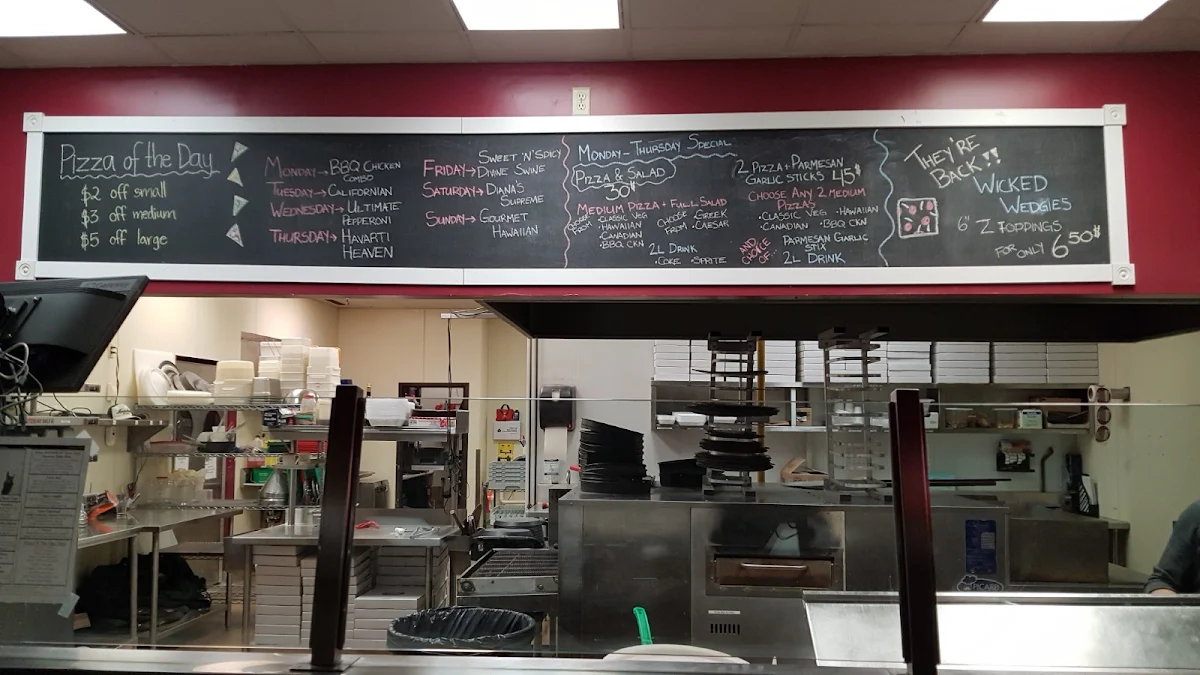 Pizza of the Day
$2 off small
$3 off medium
$5 off large
MONDAY→ BBQ CHICKEN
COMBO
TUESDAY→ CALIFORNIAN
WEDNESDAY→ ULTIMATE
PEPPERONI
THURSDAY→ HAVARTI
HEAVEN
FRIDAY→ SWEET 'N' SPICY
DIVINE SWINE
SATURDAY→ DIANA'S
SUPREME
SUNDAY→ GOURMET
HAWAIIAN
MONDAY-THURSDAY SPECIAL
PIZZA & SALAD
30$
MEDIUM PIZZA + FULL SALAD
CHOOSE FROM
•CLASSIC VEG
•HAWAIIAN
•CANADIAN
•BBQ CKN
CHOOSE FROM
•GREEK
•CAESAR
2L DRINK
•COKE •SPRITE
2 PIZZA + PARMESAN
GARLIC STICKS 45$
CHOOSE ANY 2 MEDIUM
PIZZAS
•CLASSIC VEG •HAWAIIAN
•CANADIAN •BBQ CKN
AND CHOICE OF...
PARMESAN GARLIC
STIX
2L DRINK
THEY'RE
BACK!!
WICKED
WEDGIES
6" 2 TOPPINGS
FOR ONLY 6 50$
PICARD